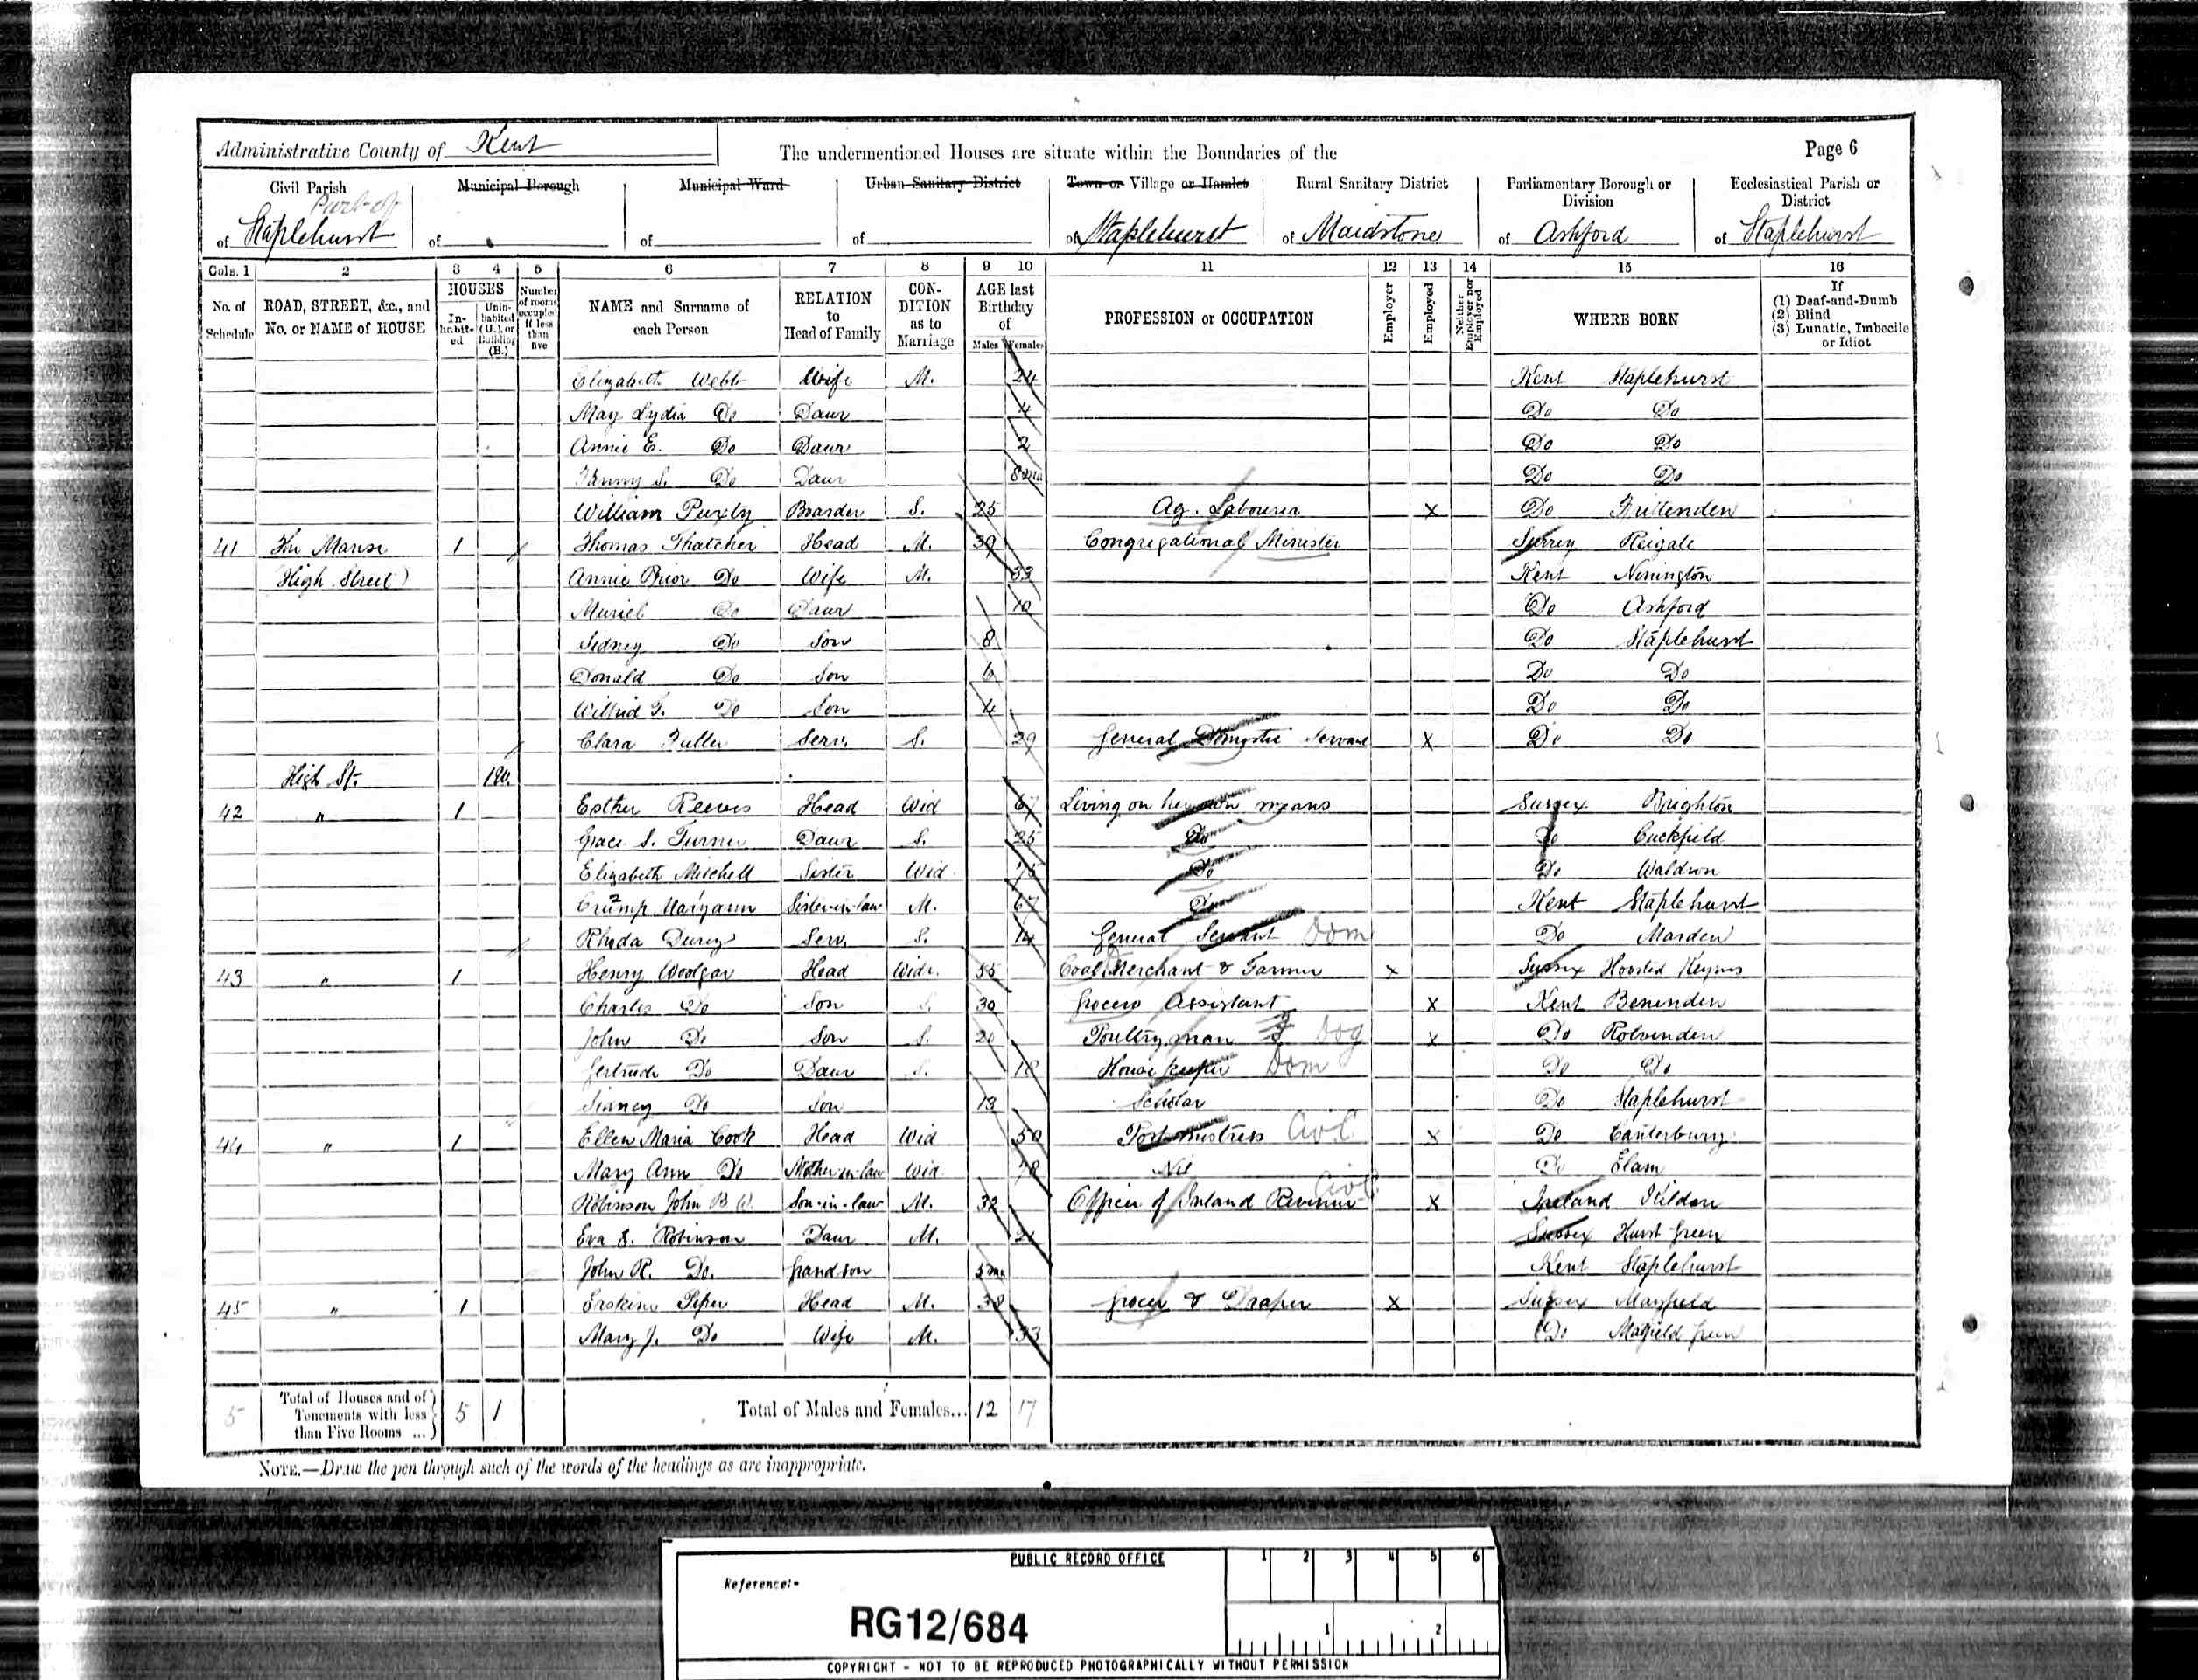 Administrative County of Kent
The undermentioned Houses are situate within the Boundaries of the
Page 6
Civil Parish Part of of Staplehurst
Municipal Borough of
Municipal Ward of
Urban Sanitary District of
Town or Village or Hamlet of Staplehurst
Rural Sanitary District of Maidstone
Parliamentary Borough or Division of Ashford
Ecclesiastical Parish or District of Staplehurst
Cols. 1 2 3 4 5 6 7 8 9 10 11 12 13 14 15 16
No. of Schedule
ROAD, STREET, &c., and No. or NAME of HOUSE
HOUSES
In-habit-ed
Unin-habited (U.), or Building (B.)
Number of rooms occupied if less than five
NAME and Surname of each Person
RELATION to Head of Family
CON-DITION as to Marriage
AGE last Birthday of
Males Females
PROFESSION or OCCUPATION
Employer
Employed
Neither Employer nor Employed
WHERE BORN
If (1) Deaf-and-Dumb (2) Blind (3) Lunatic, Imbecile or Idiot
Elizabeth Webb Wife M. 24 Kent Staplehurst
May Lydia Do Daur 4 Do Do
Annie E. Do Daur 2 Do Do
Fanny S. Do Daur 8 mo Do Do
William Puxty Boarder S. 25 Ag. Labourer X Do Frittenden
41 The Manse 1 Thomas Thatcher Head M. 39 Congregational Minister Surrey Reigate
(High Street) Annie Prior Do Wife M. 33 Kent Nonington
Muriel Do Daur 10 Do Ashford
Sidney Do Son 8 Do Staplehurst
Donald Do Son 6 Do Do
Wilfrid G. Do Son 4 Do Do
Clara Fuller Serv. S. 29 General Domestic Servant X Do Do
High St. 1
42 " 1 Esther Reeves Head Wid 67 Living on her own means Sussex Brighton
Grace S. Turner Daur S. 25 Do Do Cuckfield
Elizabeth Mitchell Sister Wid. 75 Do Do Waldron
Crump Maryann Sister-in-law M. 67 Do Kent Staplehurst
Rhoda Serv. S. 14 General Servant Dom Do Marden
43 " 1 Henry Woolgar Head Widr. 55 Coal Merchant & Farmer X Sussex Horsted Keynes
Charles Do Son S. 30 Grocers Assistant X Kent Benenden
John Do Son S. 20 Poultry man X Do Rolvenden
Gertrude Do Daur S. 18 House keeper Dom Do Do
Sidney Do Son 13 Scholar Do Staplehurst
44 " 1 Ellen Maria Cook Head Wid 50 Postmistress Civil X Do Canterbury
Mary Ann Do Mother-in-law Wid. 78 Nil Do Elam
Robinson John B W. Son-in-law M. 32 Officer of Inland Revenue Civil X Ireland Kildare
Eva E. Robinson Daur M. 21 Sussex Hurst Green
John R. Do. Grandson 5 mo Kent Staplehurst
45 " 1 Erskine Piper Head M. 38 Grocer & Draper X Sussex Mayfield
Mary J. Do Wife M. 33 Do Matfield Green
5 Total of Houses and of Tenements with less than Five Rooms ... 5 1 Total of Males and Females... 12 17
NOTE.—Draw the pen through such of the words of the headings as are inappropriate.
PUBLIC RECORD OFFICE
Reference:-
RG12/684
1 2 3 4 5 6
1 2
COPYRIGHT - NOT TO BE REPRODUCED PHOTOGRAPHICALLY WITHOUT PERMISSION